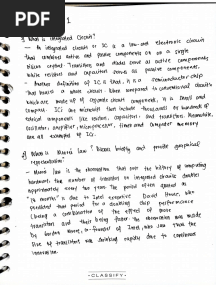 PDF
1
What is Integrated Circuit?
- An integrated circuit or IC is a low-cost electronic circuit
that combined active and passive components on a single
silicon crystal. Transistors and diodes serve as active components,
while resistors and capacitors serve as passive components.
- Another definition of IC is that, it is a semiconductor chip
that houses a whole circuit. When compared to conventional circuits
which are made up of separate circuit components, it is small and
compact. ICs are microchips that include thousands or hundreds of
components like resistors, capacitors, and transistors. Meanwhile,
oscillator, amplifier, microprocessor, timers and computer memory
are all examples of ICs.
What is Moore's Law? Discuss briefly and provide graphical
representation?
- Moore's Law is the observation that over the history of computing
hardware, the number of transistors in integrated circuits doubles
approximately every two years. The period often quoted as
"18 months" is due to Intel executive David House, who
predicted that period for a doubling chip performance
(being a combination of the effect of more
transistors and their being faster. The observation was made
by Gordon Moore, co-founder of Intel, who saw that the
of transistors was shrinking rapidly due to continued
innovation.
-CLASSIFY-